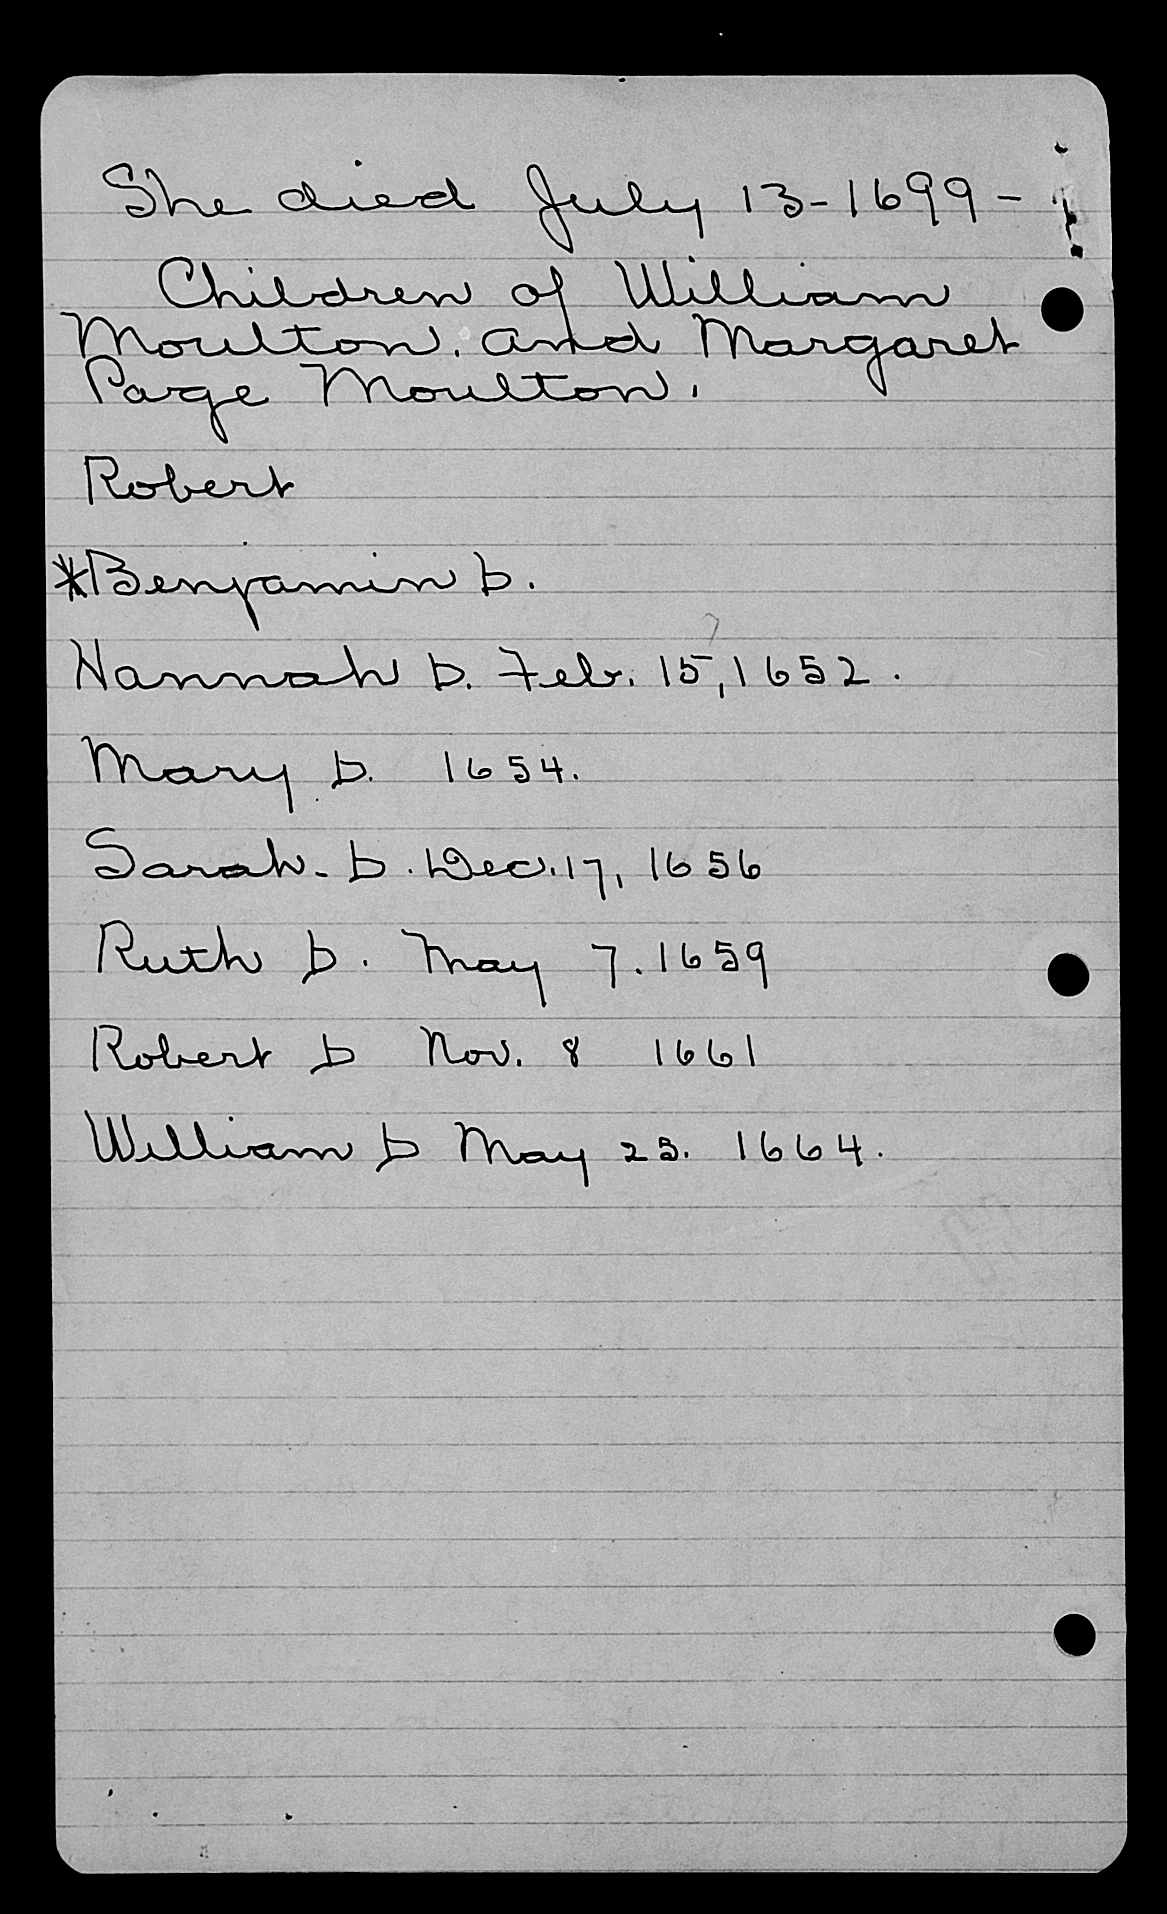 She died July 13-1699-
Children of William
Moulton. and Margaret
Page Moulton.
Robert
*Benjamin b.
Hannah b. Feb. 15, 1652.
Mary b. 1654.
Sarah- b. Dec. 17, 1656
Ruth b. May 7. 1659
Robert b Nov. 8 1661
William b May 25. 1664.